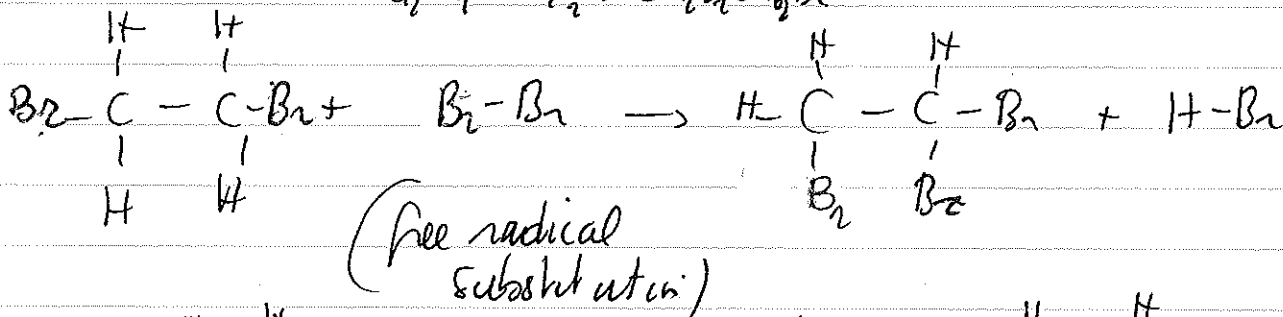 H H
Br - C - C - Br + Br - Br → H - C - C - Br + H - Br
H H
H H
Br Br
(free radical
substitution)
H
H H